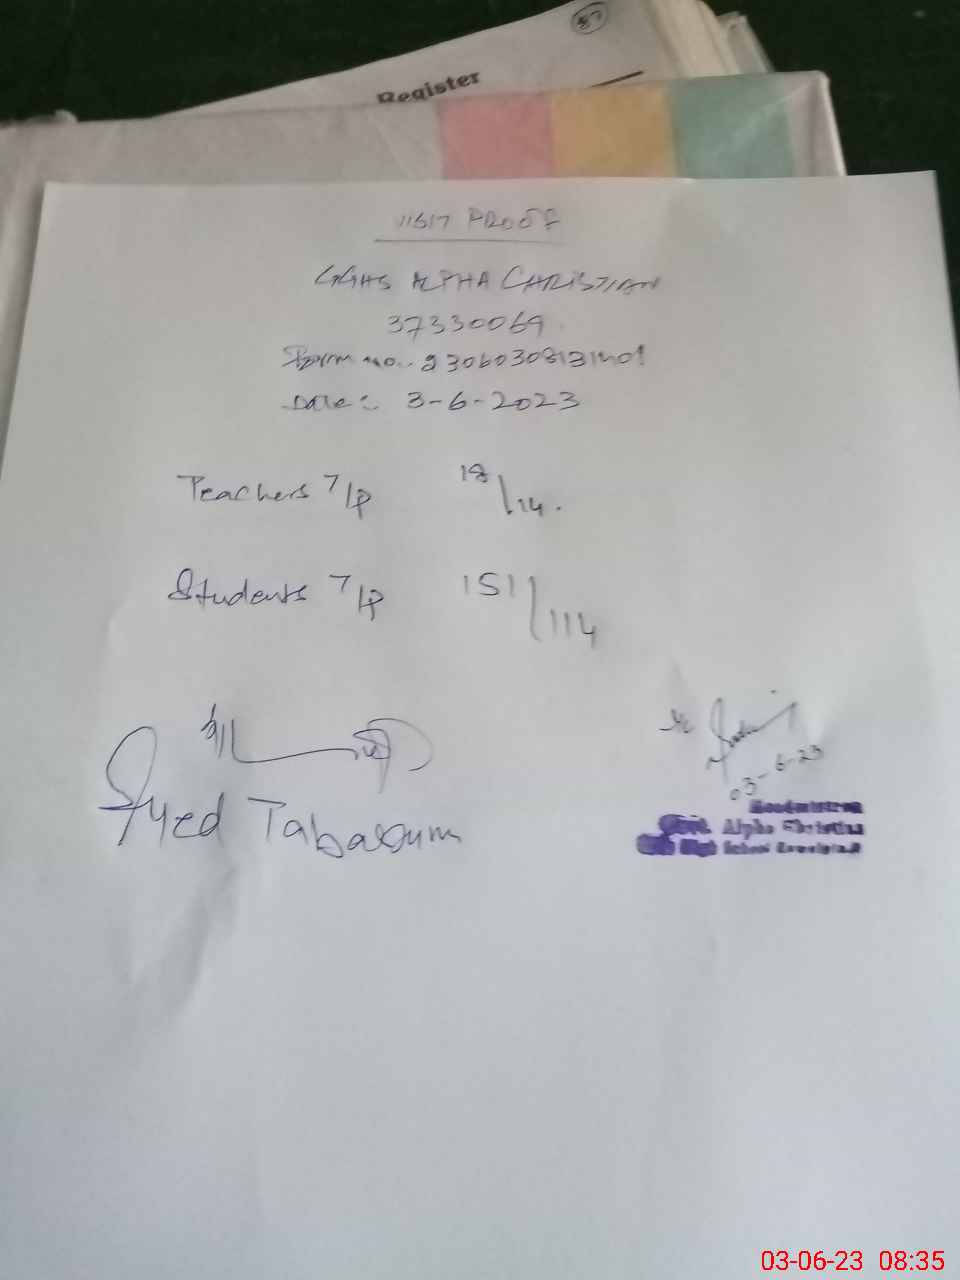 87
Register
VISIT PROOF
GGHS ALPHA CHRISTIAN
37330069
Form no.. 23060308131401
Date:. 3-6-2023
Teachers T/P 18/14.
Students T/P 151/114
Syed Tabassum
03-6-23
Headmistress
Govt. Alpha Christian
High School Rawalpindi
03-06-23 08:35